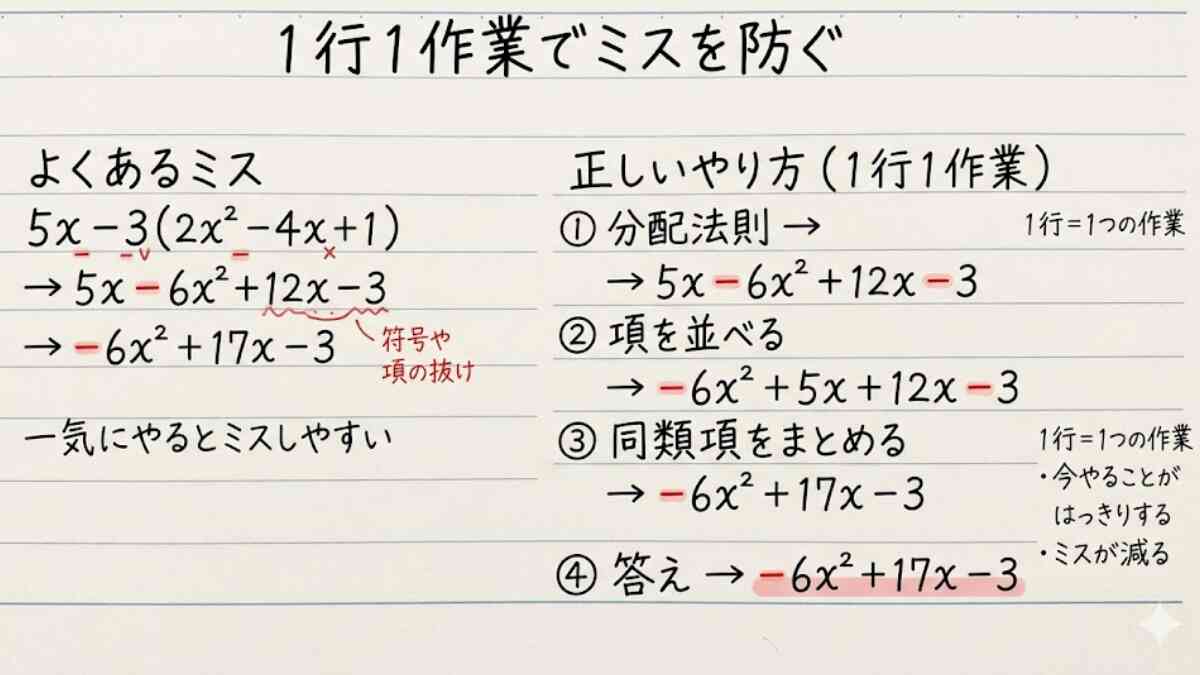 1行1作業でミスを防ぐ
よくあるミス
5x－3(2x²－4x+1)
→ 5x－6x²+12x－3
→ －6x²+17x－3
符号や
項の抜け
一気にやるとミスしやすい
正しいやり方(1行1作業)
① 分配法則 →
1行=1つの作業
→ 5x－6x²+12x－3
② 項を並べる
→ －6x²+5x+12x－3
③ 同類項をまとめる
→ －6x²+17x－3
④ 答え → －6x²+17x－3
1行=1つの作業
・今やることが
はっきりする
・ミスが減る